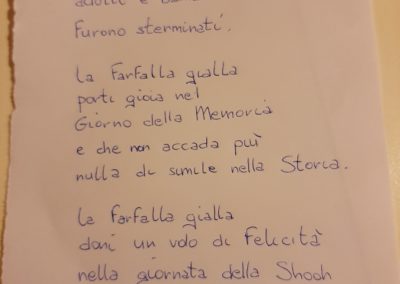 adulti e
furono sterminati.
La Farfalla gialla
porti gioia nel
Giorno della Memoria
e che non accada più
nulla di simile nella Storia.
La farfalla gialla
doni un volo di Felicità
nella giornata della Shoah